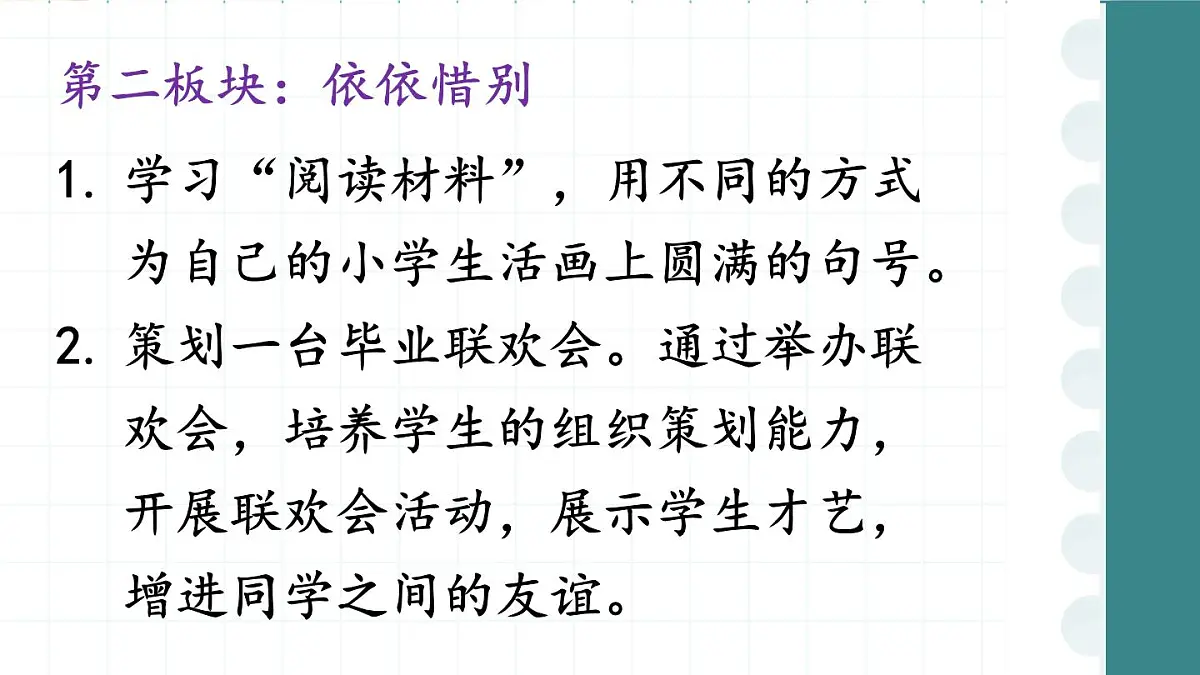 第二板块：依依惜别
1. 学习“阅读材料”，用不同的方式
为自己的小学生活画上圆满的句号。
2. 策划一台毕业联欢会。通过举办联
欢会，培养学生的组织策划能力，
开展联欢会活动，展示学生才艺，
增进同学之间的友谊。